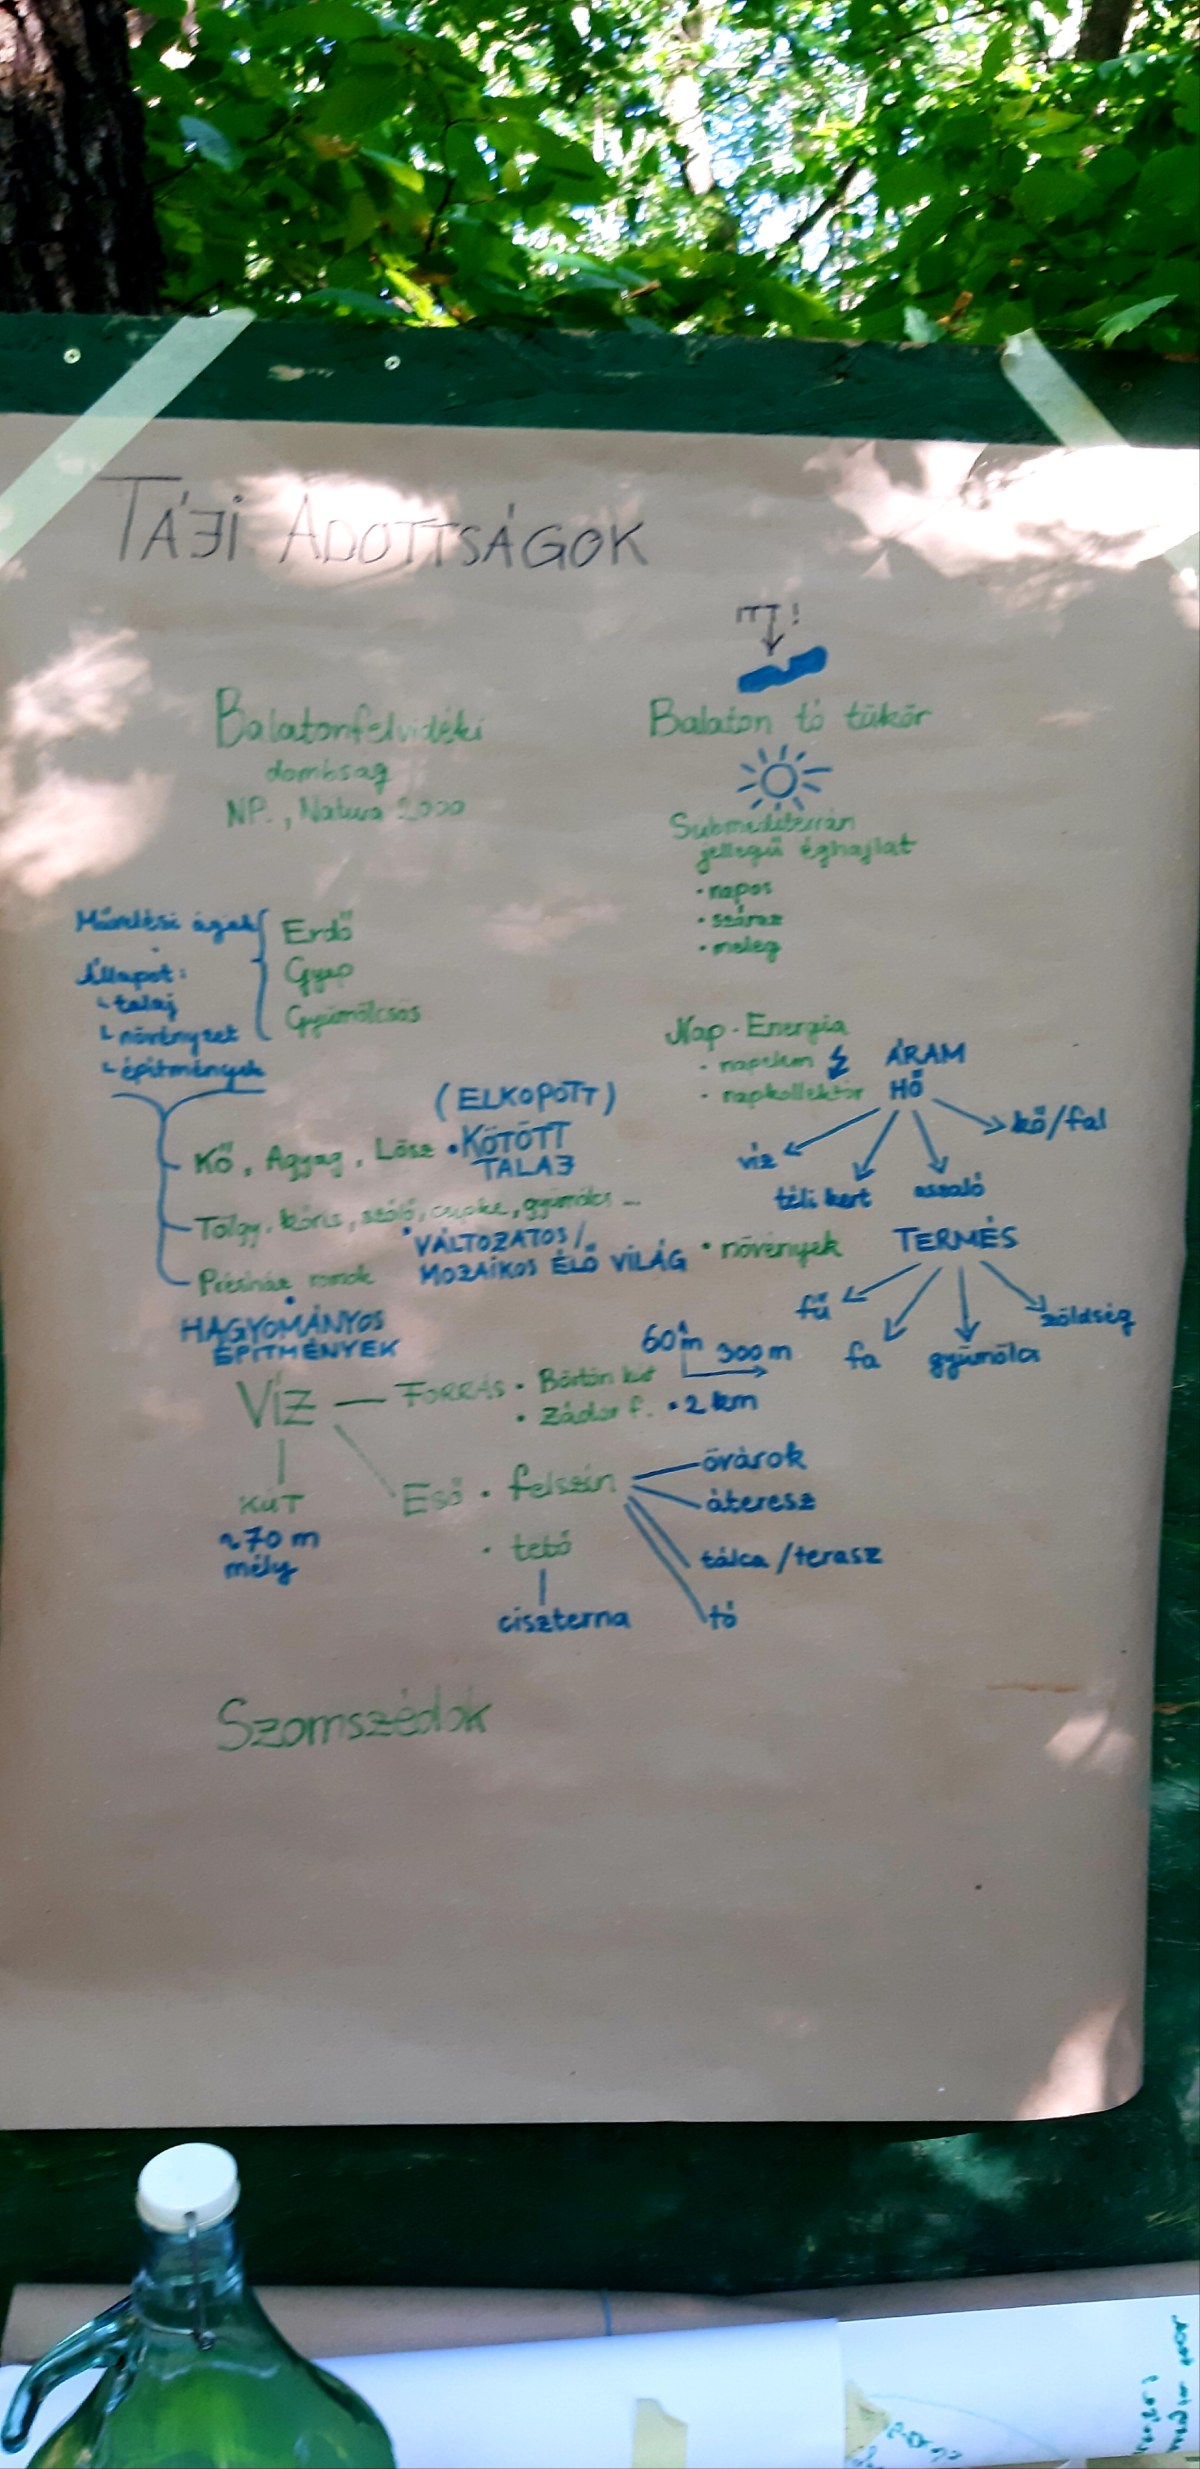 TÁJI ADOTTSÁGOK
ITT!
Balatonfelvidéki
dombság
NP., Natura 2000
Balaton tó tükör
Submediterrán
jellegű éghajlat
• napos
• száraz
• meleg
Művelési ágak
Állapot:
talaj
növényzet
építmények
Erdő
Gyep
Gyümölcsös
Nap-Energia
• napelem
• napkollektor
ÁRAM
HŐ
víz
téli kert
aszaló
kő/fal
(ELKOPOTT)
Kő, Agyag, Lösz • KÖTÖTT
TALAJ
Tölgy, kőris, szőlő, csipke, gyümölcs ...
• VÁLTOZATOS/
MOZAIKOS ÉLŐ VILÁG
Présház romok
• HAGYOMÁNYOS
ÉPÍTMÉNYEK
• növények
TERMÉS
fű
fa
gyümölcs
zöldség
VÍZ — FORRÁS • Börtön kút
60m
300m
• Zádor f. • 2 km
KÚT
~70 m
mély
Eső • felszín
övárok
áteresz
tálca/terasz
tó
• tető
ciszterna
Szomszédok